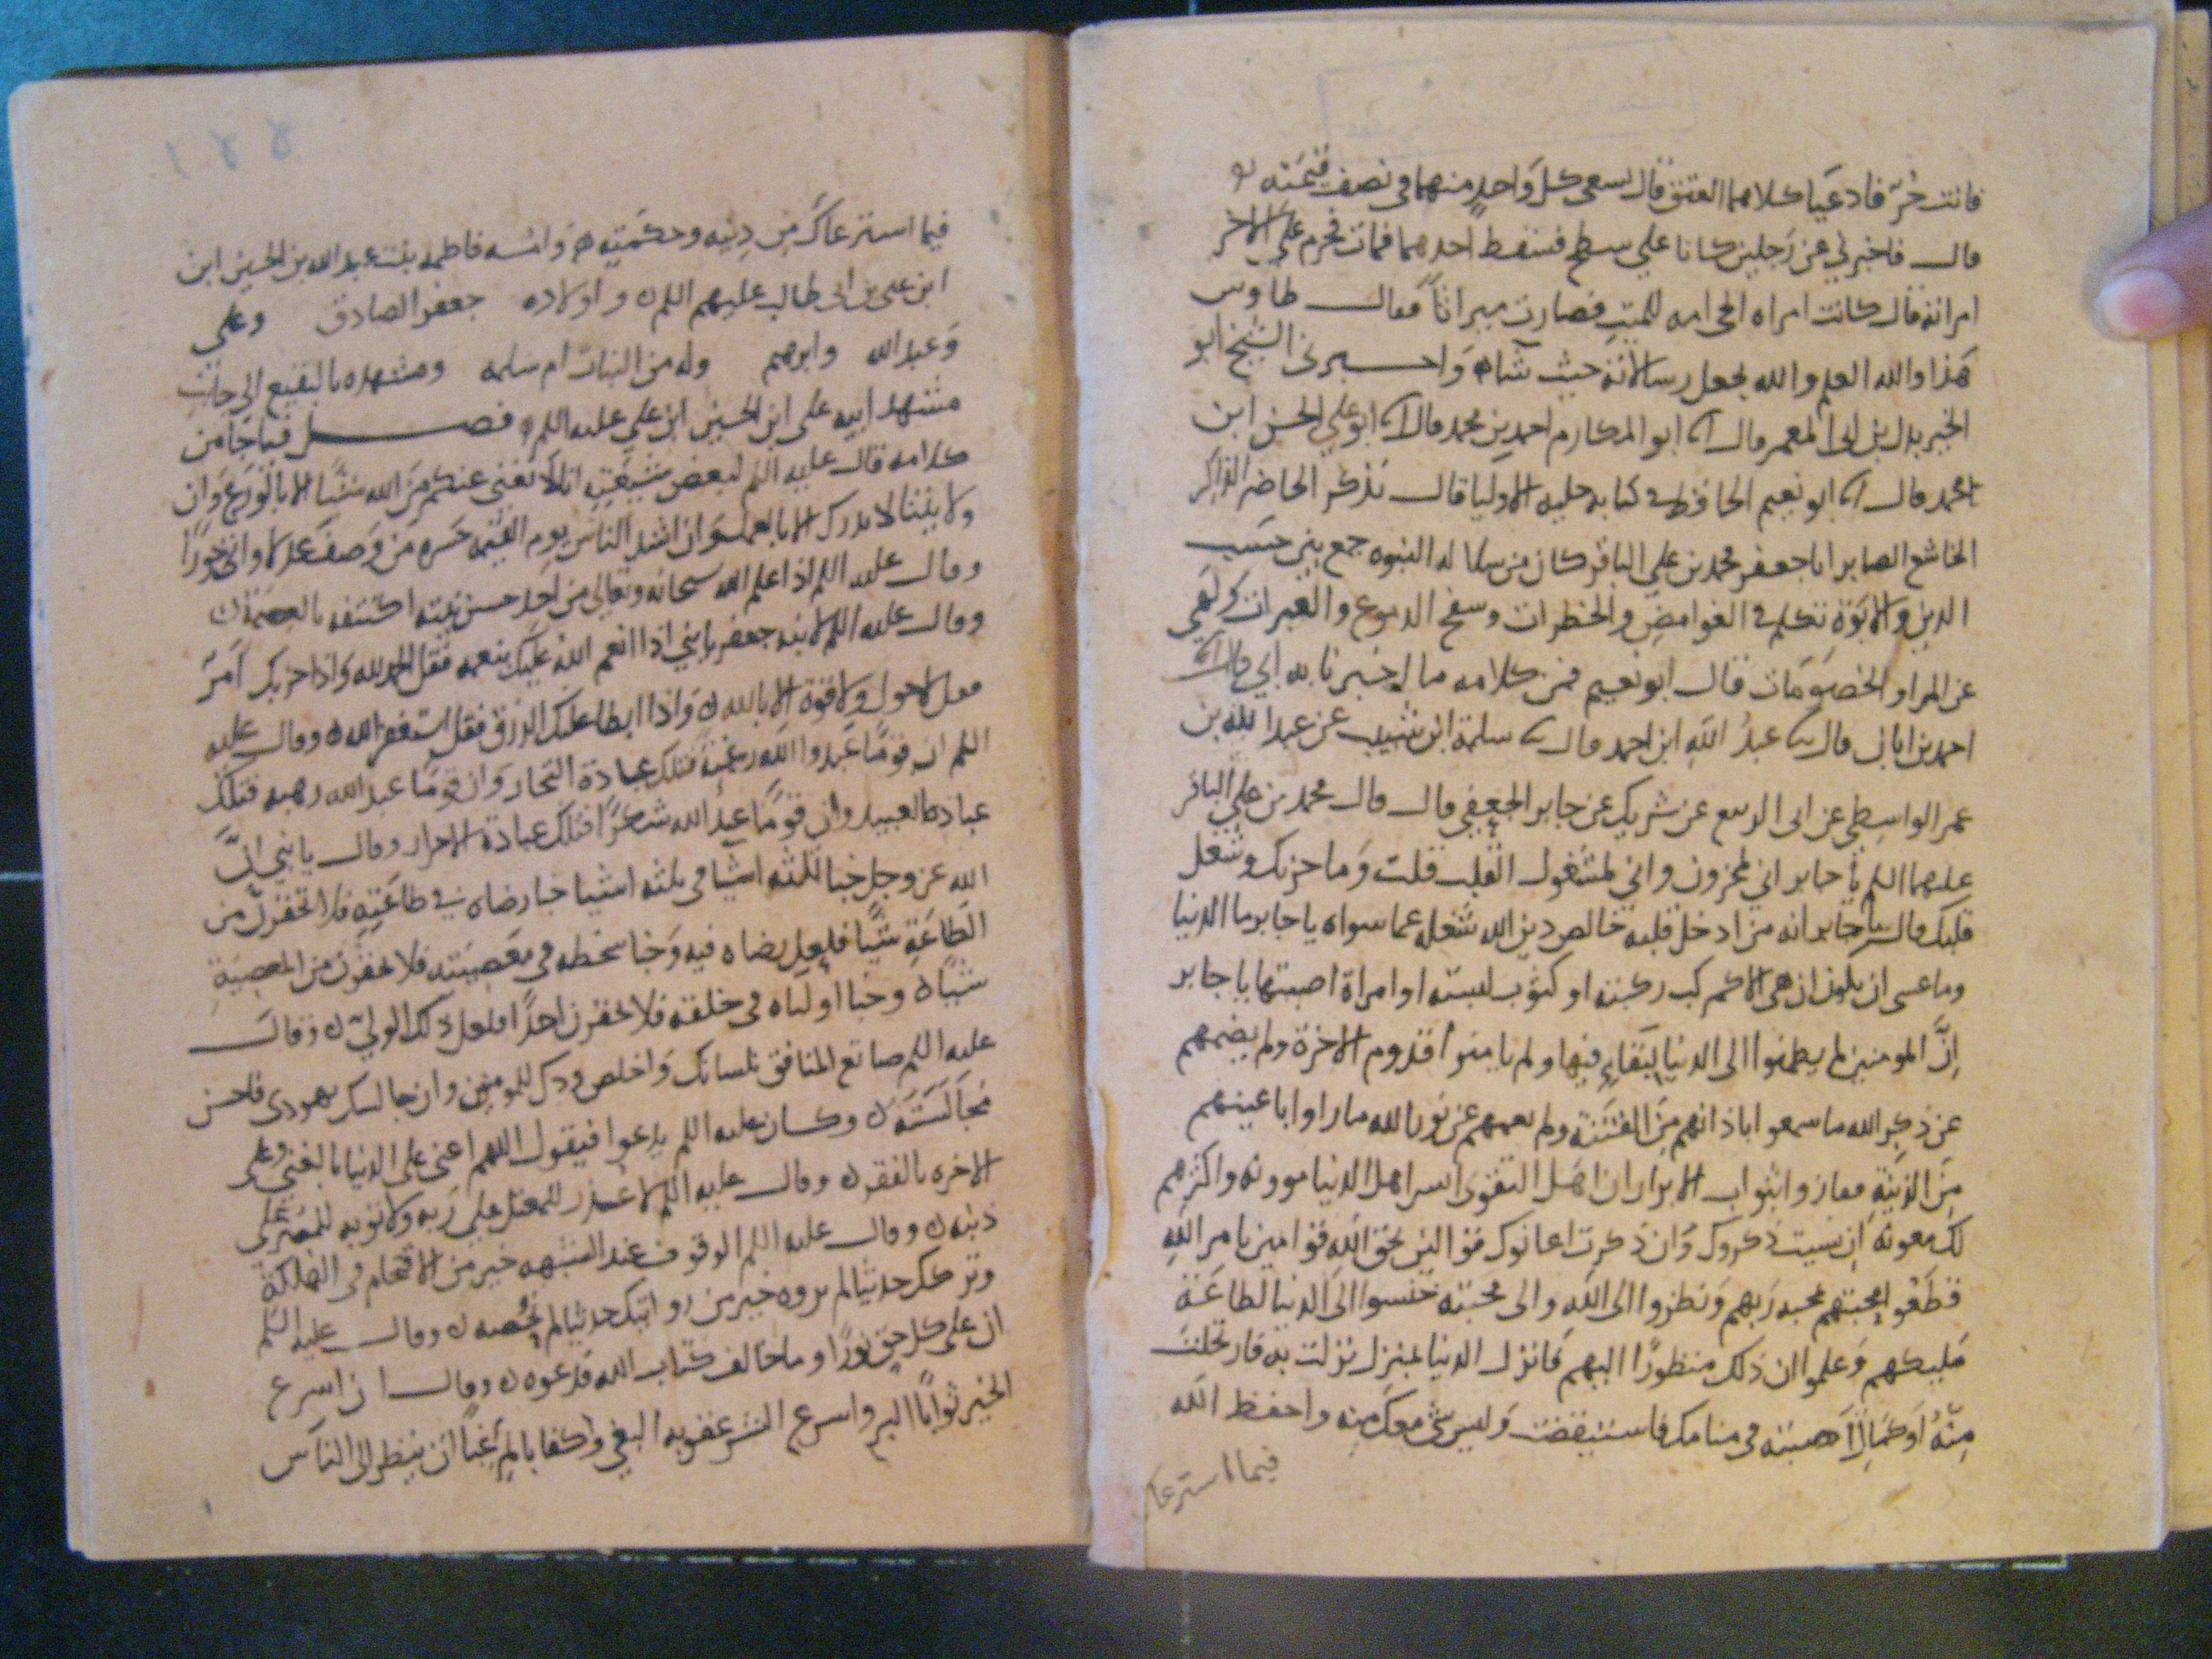 فانت حر فادعيا كلاهما العتق قال يسعى كل واحد منهما في نصف قيمته
قال فاخبرني عن رجلين كانا على سطح فسقط احدهما فمات فحرم على الاخر
امراته قال كانت امراه الحي امه للميت فصارت ميراثاً فقال طاوس
هذا والله العلم والله يجعل رسالاته حيث شاء واخبرني الشيخ ابو
الخير بدل بن ابي المعمر قال ابو المكارم احمد بن محمد قال ابو علي الحسن ابن
احمد قال ابو نعيم الحافظ في كتابه حليه الاوليا قال نذكر الحاضر الذاكر
الخاشع الصابر ابا جعفر محمد بن علي الباقر كان من سلاله النبوه جمع بين حسب
الدين والابوة تكلم في الغوامض والخطرات وسفح الدموع والعبرات ونهى
عن المرا والخصومات قال ابو نعيم فمن كلامه ما اخبرنا به ابي قال
احمد بن ابان قال عبد الله ابن احمد قال سلمة ابن شبيب عن عبد الله بن
عمر الواسطي عن ابي الربيع عن شريك عن جابر الجعفي قال قال محمد بن علي الباقر
عليهما السلم يا جابر اني لمحزون واني لمشغول القلب قلت وما حزنك وشغل
قلبك قال يا جابر انه من ادخل قلبه خالص دين الله شغله عما سواه يا جابر ما الدنيا
وما عسى ان يكون ان هي الا كمركب ركبته او كثوب لبسته او امراة اصبتها يا جابر
إنَّ المومنين لم يطمنوا الى الدنيا لبقاءٍ فيها ولم يامنوا قدوم الاخرة ولم يصمهم
عن ذكر الله ما سمعوا باذانهم من الفتنة ولم يعمهم عن نور الله ما راوا باعينهم
من الزينة ففازوا بثواب الابرار ان اهل التقوى ايسر اهل الدنيا موونه واكثرهم
لك معونة ان نسيت ذكروك وان ذكرت اعانوك قوالين بحق الله قوامين بامر الله
قطعوا محبتهم بمحبه ربهم ونظروا الى الله والى محبته الى الدنيا لطاعة
مليكهم وعلموا ان ذلك منظورًا اليهم فانزل الدنيا بمنزل نزلت به فارتحلت
منه او كمالٍ اصبته في منامك فاستيقظت وليس شي معك منه واحفظ الله
فيما استرعاك
١٢٢
فيما استرعاك من دينه وحكمته وامه فاطمه بنت عبد الله بن الحسين ابن
ابن علي بن ابي طالب عليهم السلم واولاده جعفر الصادق وعلي
وعبد الله وابرهيم وله من البنات ام سلمه ومشهده بالبقيع الى جانب
مشهد ابيه علي ابن الحسين ابن علي عليه السلم فصل فيما جا من
كلامه قال عليه السلم لبعض شيعته انا لا نغني عنكم من الله شيًا الا بالورع وان
ولايتنا لا تدرك الا بالعمل وان اشد الناس يوم القيمه حسرة من وصف عدلا واتى جورًا
وقال عليه السلم اذا علم الله سبحانه وتعالى من احد حسن نيته اكتنفه بالعصمة
وقال عليه السلم لابنه جعفر يا بني اذا انعم الله عليك بنعمه فقل الحمد لله واذا حزبك امر
فقل لا حول ولا قوة الا بالله واذا ابطا عليك الرزق فقل استغفر الله وقال عليه
السلم ان قومًا عبدوا الله رغبة فتلك عبادة التجار وان قومًا عبدوا الله رهبه فتلك
عبادة العبيد وان قومًا عبدوا الله شكرًا فتلك عبادة الاحرار وقال يا بني انَّ
الله عز وجل خبا ثلثه اشيا في ثلثه اشيا خبا رضاه في طاعته فلا تحقرن من
الطاعة شيًا فلعل رضاه فيه وخبا سخطه في معصيته فلا تحقرن من المعصية
شيًا وخبا اولياه في خلقه فلا تحقرن احدًا فلعل ذلك الولي وقال
عليه السلم صانع المنافق بلسانك واخلص ودك للمومنين وان جالسك يهودي فاحسن
مجالسته وكان عليه السلم يدعوا فيقول اللهم اعني على الدنيا بالغنى وعلى
الاخره بالفقر وقال عليه السلم لا عذر للمعتل على ربه ولا توبه للمصر على
ذنبه وقال عليه السلم الوقوف عند الشبهه خير من الاقتحام في الهلكة
وتركك حديثا لم تروه خير من روايتك حديثا لم تحصه وقال عليه السلم
ان على كل حق نورًا وما خالف كتاب الله فدعوه وقال ان اسرع
الخير ثوابًا البر واسرع الشر عقوبه البغي وكفا بالمر عيبًا ان ينظر الى الناس